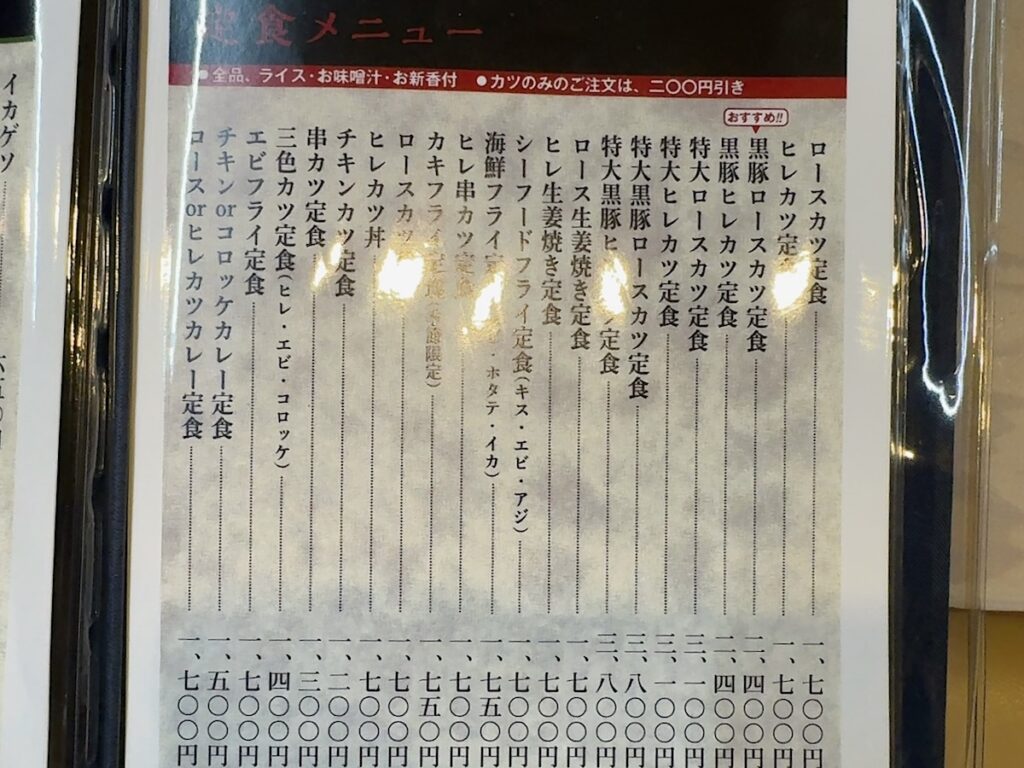 定食メニュー
●全品、ライス・お味噌汁・お新香付 ●カツのみのご注文は、二〇〇円引き
ロースカツ定食 一、七〇〇円
ヒレカツ定食 一、七〇〇円
おすすめ!!
黒豚ロースカツ定食 二、四〇〇円
黒豚ヒレカツ定食 二、四〇〇円
特大ロースカツ定食 三、一〇〇円
特大ヒレカツ定食 三、一〇〇円
特大黒豚ロースカツ定食 三、八〇〇円
特大黒豚ヒレカツ定食 三、八〇〇円
ロース生姜焼き定食 一、七〇〇円
ヒレ生姜焼き定食 一、七〇〇円
シーフードフライ定食(キス・エビ・アジ) 一、七〇〇円
海鮮フライ定 ・ホタテ・イカ) 一、七五〇円
ヒレ串カツ定食 一、七〇〇円
カキフライ定食(季節限定) 一、七五〇円
ロースカツ 一、七〇〇円
ヒレカツ丼 一、七〇〇円
チキンカツ定食 一、二〇〇円
串カツ定食 一、三〇〇円
三色カツ定食(ヒレ・エビ・コロッケ) 一、四〇〇円
エビフライ定食 一、七〇〇円
チキンorコロッケカレー定食 一、五〇〇円
ロースorヒレカツカレー定食 一、七〇〇円
イカゲソ